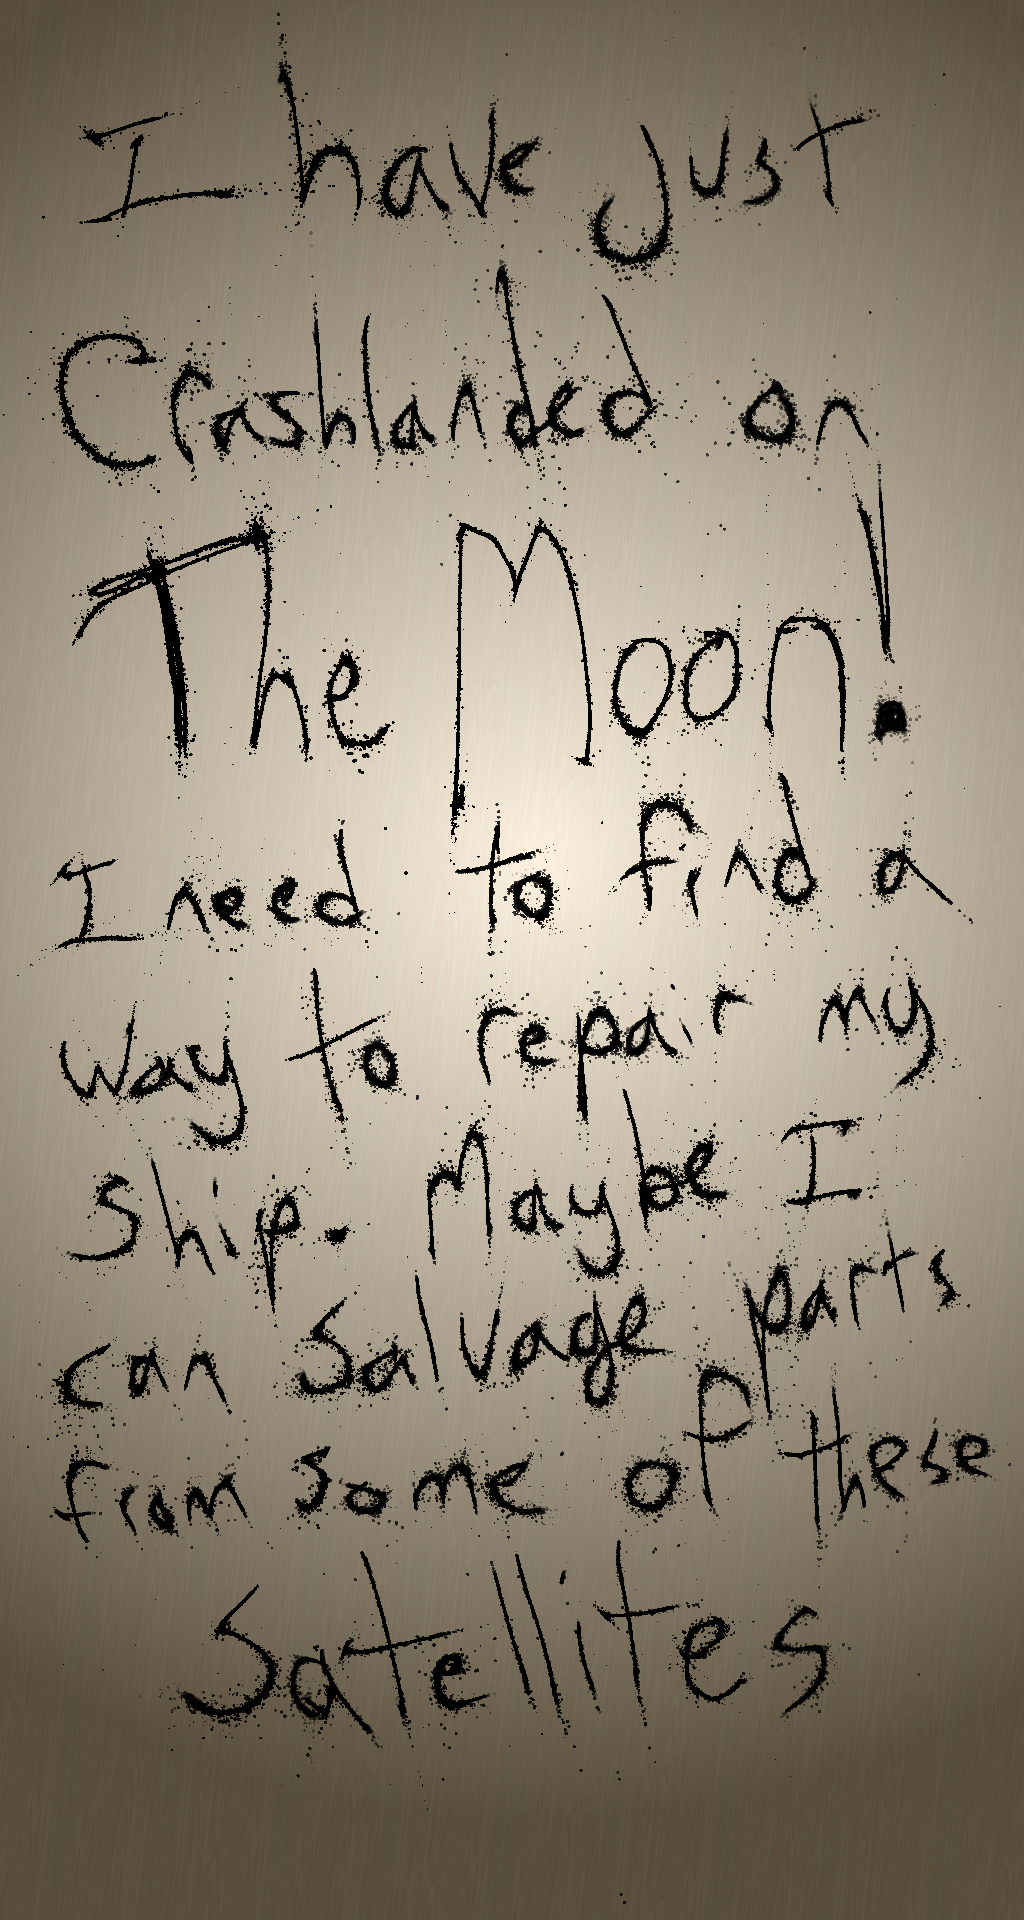 I have just
Crashlanded on
The Moon!
I need to find a
way to repair my
Ship. Maybe I
can Salvage parts
from some of these
Satellites